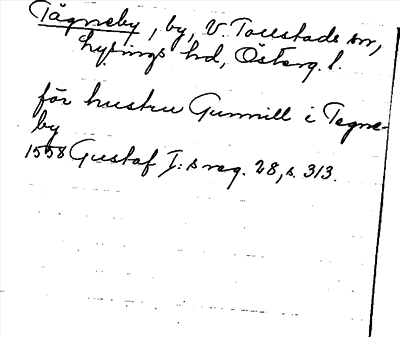 Tägneby, by, V. Tollstads sn,
Lysings hd, Österg. l.
för hustru Gunnill i Tegne-
by
1558 Gustaf I:s reg. 28, s. 313.